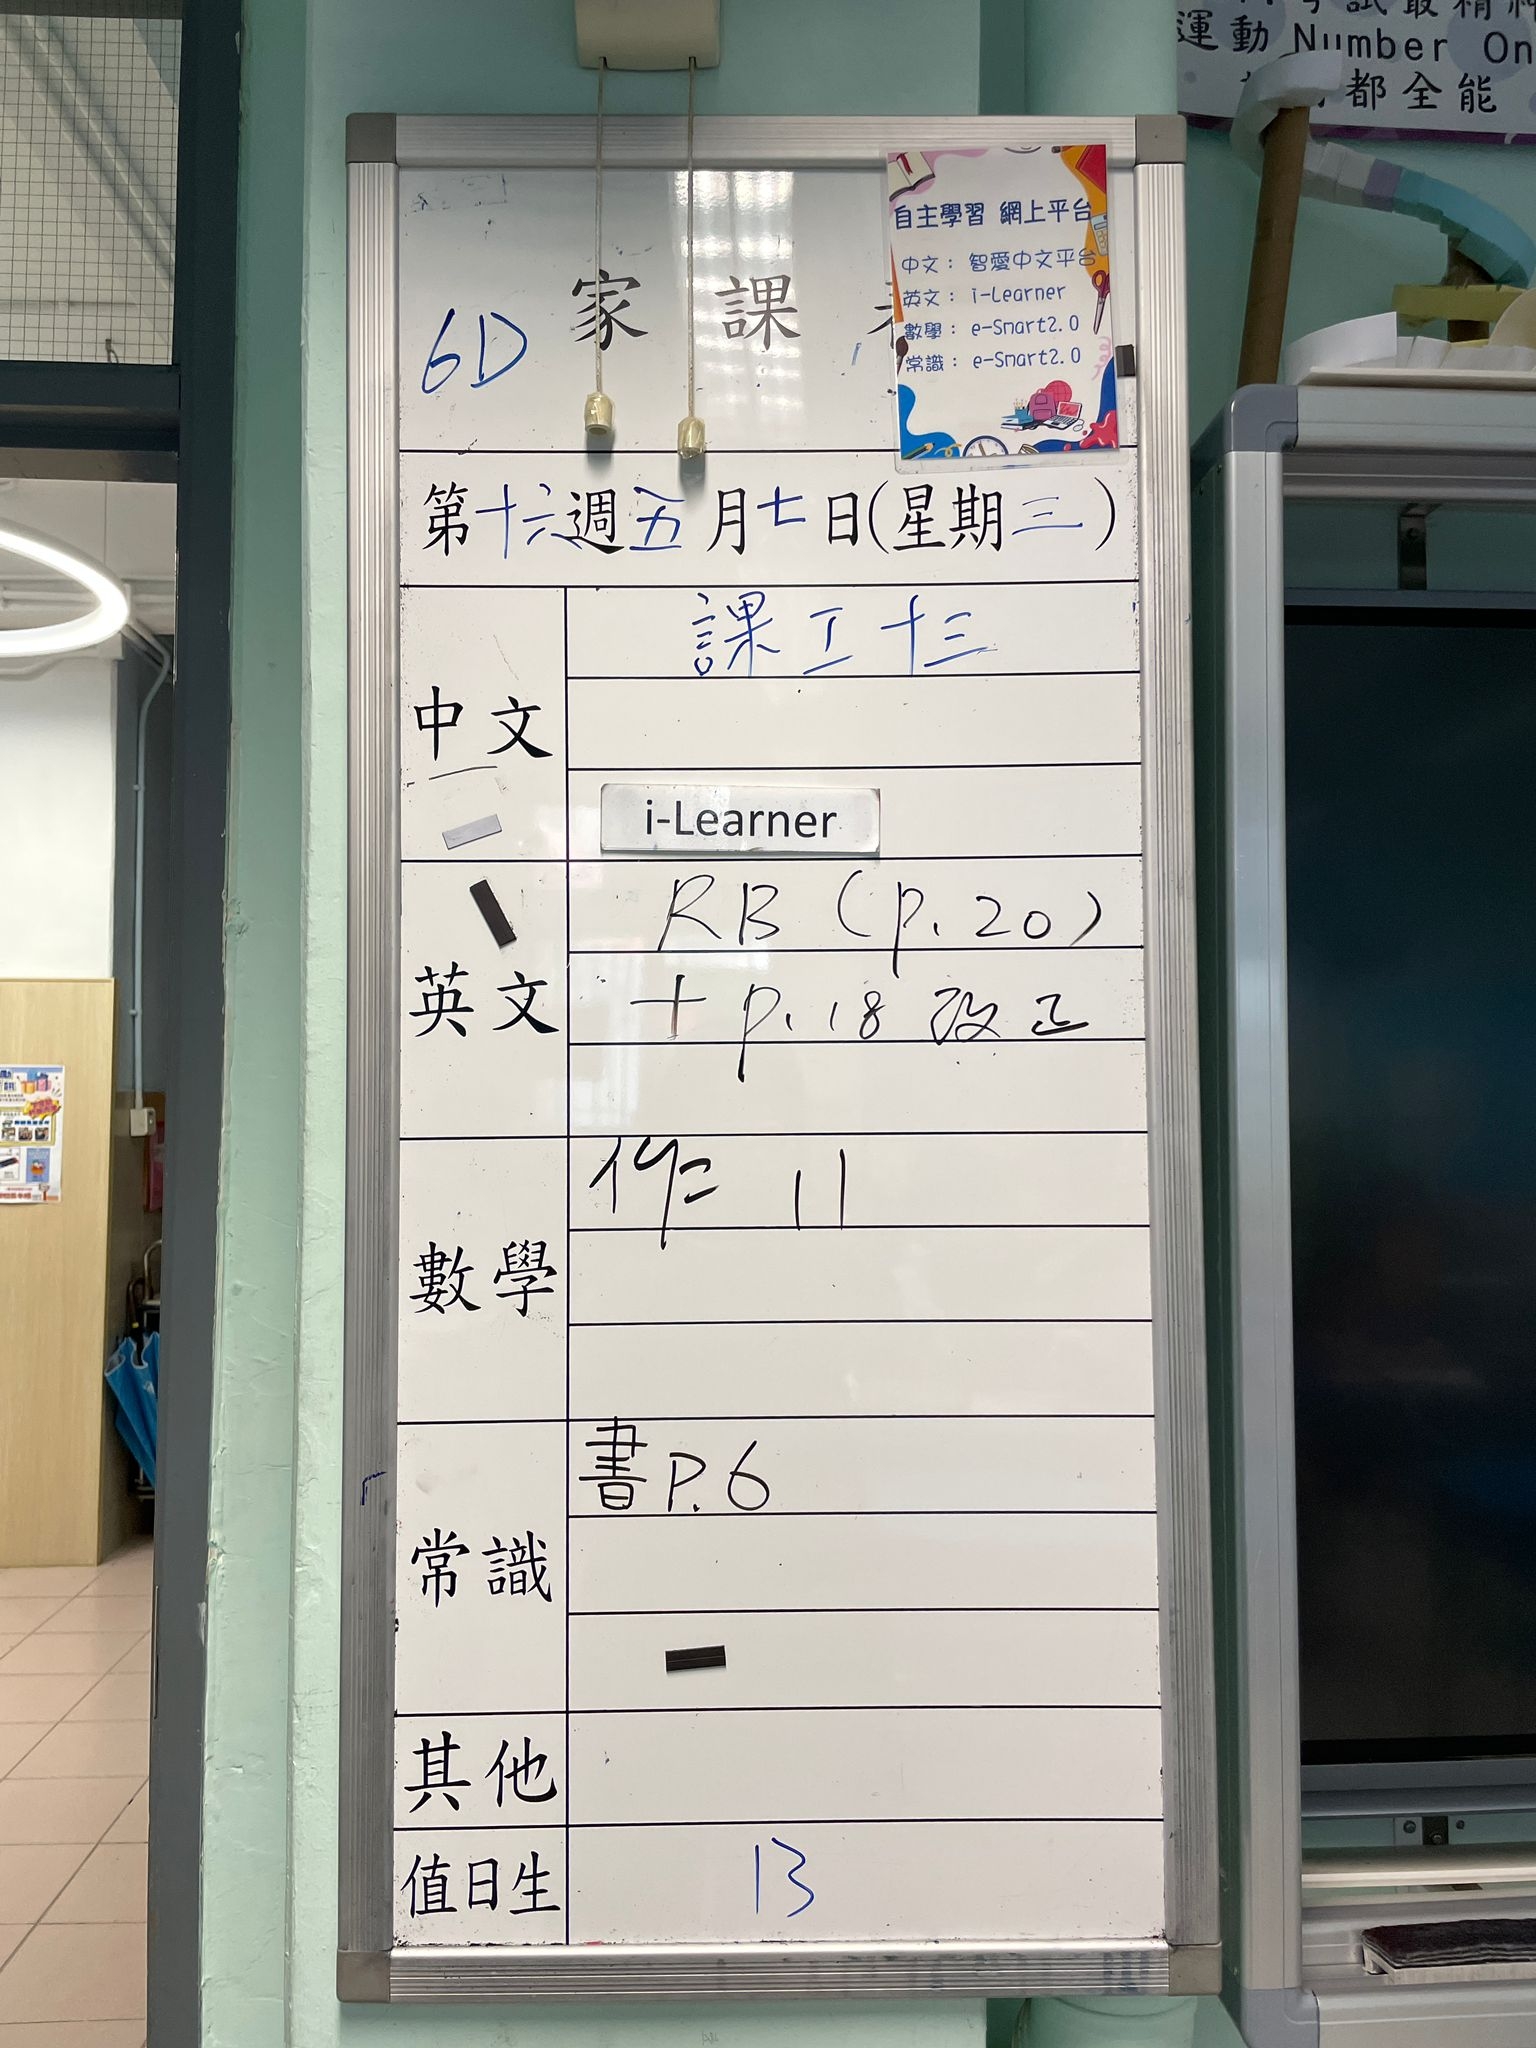 運動 Number On
都全能
自主學習 網上平台
中文： 智愛中文平台
英文： i-Learner
數學： e-Smart2.0
常識： e-Smart2.0
6D 家課
第十六週五月七日(星期三)
中文
課工十三
i-Learner
英文
RB (p.20)
+ p.18 改正
數學
作 11
常識
書P.6
其他
值日生
13